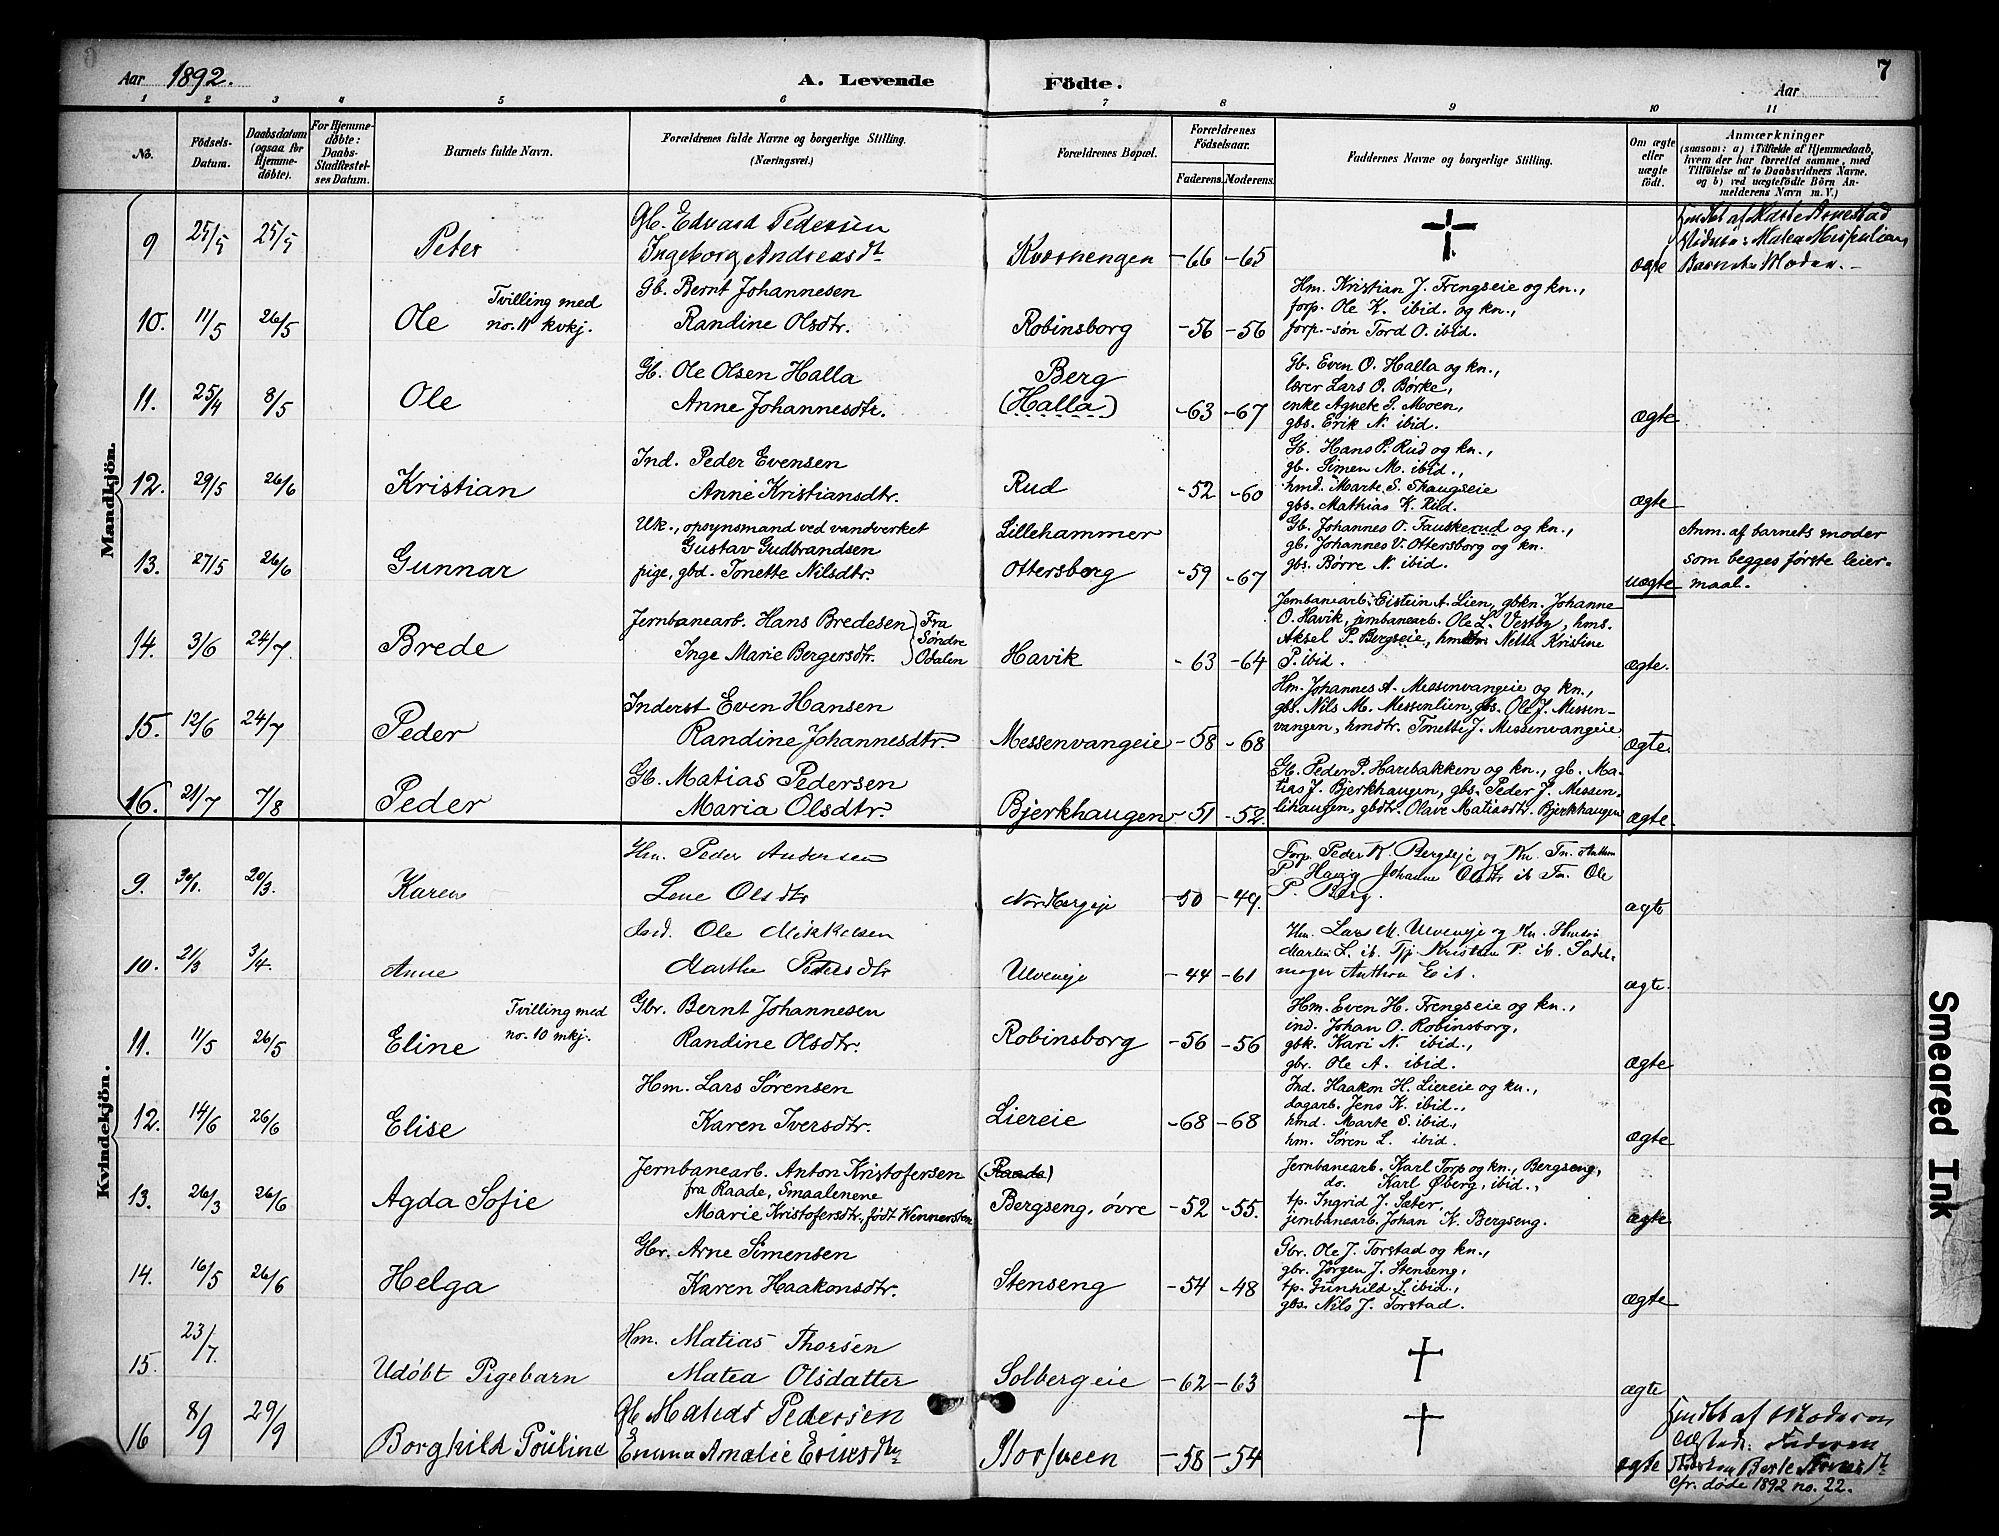 Aar 1892.
A. Levende Födte.
Aar
7
1 2 3 4 5 6 7 8 9 10 11
No.
Födsels-Datum.
Daabsdatum (ogsaa for Hjemme-døbte).
For Hjemme-døbte: Daabs-Stadfæstel-ses Datum.
Barnets fulde Navn.
Forældrenes fulde Navne og borgerlige Stilling.
(Næringsvei.)
Forældrenes Bopæl.
Forældrenes Födselsaar.
Faderens. Moderens.
Faddernes Navne og borgerlige Stilling.
Om ægte eller uægte födt.
Anmærkninger
(saasom: a) i Tilfælde af Hjemmedaab,
hvem der har forrettet samme, med
Tilföielse af to Daabsvidners Navne.
og b) ved uægtefödte Börn An-
melderens Navn m. V.)
Mandkjön.
9 25/5 25/5 Peter
Gb. Edvard Pedersen
Ingeborg Andreasdt
Kværnengen -66 -65
ægte
Barnets Moder.
10. 11/5 26/5 Ole
Tvilling med
no. 11 kvkj.
Gb. Bernt Johannesen
Randine Olsdtr.
Robinsborg -56 -56
Hm. Kristian J. Frengseie og kn.,
forp. Ole K. ibid. og kn.,
forp.-søn Tord O. ibid.
11. 25/4 8/5 Ole
Gb. Ole Olsen Halla
Anne Johannesdtr.
Berg
(Halla) -63 -67
Gb. Even O. Halla og kn.,
lærer Lars O. Børke,
enke Agnete P. Moen,
gbs. Erik N. ibid.
ægte
12. 29/5 26/6 Kristian
Ind. Peder Evensen
Anne Kristiansdtr.
Rud -52 -60
Gb. Hans P. Rud og kn.,
gb. Simen M. ibid.,
hmd. Marte S. Skaugseie
gbs. Mathias K. Rud.
ægte
13. 27/5 26/6 Gunnar
Uk., opsynsmand ved vandverket
Gustav Gudbrandsen
pige, gbd. Tonette Nilsdtr.
Lillehammer
Ottersborg -59 -67
Gb. Johannes O. Fauskerud og kn.,
gb. Johannes V. Ottersborg og kn.
gbs. Børre N. ibid.
uægte
Anm. af barnets moder
som begges første leier-
maal.
14. 3/6 24/7 Brede
Jernbanearb. Hans Bredesen
Inge Marie Bergersdtr.
Fra
Søndre
Odalen
Havik -63 -64
Jernbanearb. Eistein A. Lien, gbkn. Johanne
O. Havik, jernbanearb. Ole L. Vestby, hms.
Aksel P. Bergseie, Netta Kristine
P. ibid.
ægte.
15. 12/6 24/7 Peder
Inderst Even Hansen
Randine Johannesdtr.
Messenvangeie -58 -68
Hm. Johannes A. Messenvangeie og kn.,
gbs. Nils M. Messenlien, gbs. Ole J. Messen-
vangen, hmdtr. Tonette J. Messenvangeie
ægte.
16. 21/7 7/8 Peder
Gb. Matias Pedersen
Maria Olsdtr.
Bjerkhaugen -51 -52.
Gb. Peder P. Harebakken og kn., gb. Ma-
tias J. Bjerkhaugen, gbs. Peder J. Messen-
lihaugen, gbdt. Olave Matiasdtr. Bjerkhaugen
ægte.
Kvindekjön.
9. 20/3. Karen
Hm. Peder Andersen
Lene Olsdtr
-50 -49.
Forp. Peder K. Bergseje og Kn.
P. Havig Johanne Olsdtr ib. Tn. Ole
P. Berg.
ægte
10. 21/3 3/4. Anne
Ind. Ole Mikkelsen
Marthe Pedersdtr
Ulveneje -44 -61
Hm. Lars M. Ulveneje og Kn.
Marten L. ib. Tjp. Kristian P. ib. Sadel-
mager Anthon E. ib.
ægte.
11. 11/5 26/5 Eline
Tvilling med
no. 10 mkj.
Gbr. Bernt Johannesen
Randine Olsdtr.
Robinsborg -56 -56
Hm. Even H. Frengseie og kn.,
ind. Johan O. Robinsborg,
gbk. Kari N. ibid.,
gbr. Ole A. ibid.
ægte
12. 14/6 26/6 Elise
Hm. Lars Sørensen
Karen Iversdtr.
Liereie -68 -68
Ind. Haakon H. Liereie og kn.,
dagarb. Jens K. ibid.,
hmd. Marte S. ibid.
hm. Søren L. ibid.
ægte
13. 26/3 26/6 Agda Sofie
Jernbanearb. Anton Kristofersen
fra Raade, Smaalenene
Marie Kristofersdtr. født Wennersten
(Raade)
Bergseng, øvre -52 -55.
Jernbanearb. Karl Torp og kn., Bergseng,
do. Karl Øberg, ibid.,
tp. Ingrid J. Sæter,
jernbanearb. Johan K. Bergseng.
ægte
14. 16/5 26/6 Helga
Gbr. Arne Simensen
Karen Haakonsdtr.
Stenseng -54 -48
Gbr. Ole J. Torstad og kn.,
gbr. Jørgen J. Stenseng,
tp. Gunhild L. ibid.,
gbs. Nils J. Torstad.
ægte
15. 23/7. Udøbt Pigebarn
Hm. Matias Thorsen
Matea Olsdatter
Solbergeie -62 -63
ægte
16 8/9 29/9 Borghild Pouline
Gb Matias Pedersen
Emma Amalie Eriksdtr
Storsveen -58 -54
ægte
af Moderen
Faderen
Cfr. døde 1892 no. 22.
Smeared Ink